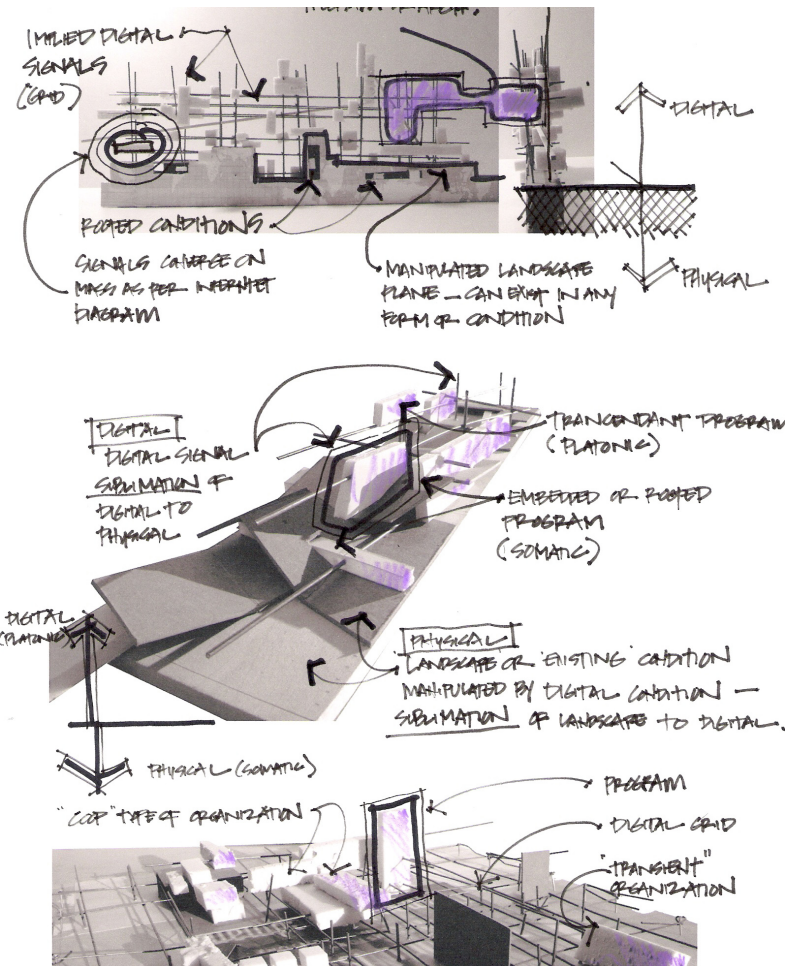 IMPLIED DIGITAL
SIGNALS
(GRID)
DIGITAL
ROOTED CONDITIONS
SIGNALS CONVERGE ON
MASS AS PER INTERNET
DIAGRAM
MANIPULATED LANDSCAPE
PLANE - CAN EXIST IN ANY
FORM OR CONDITION
PHYSICAL
DIGITAL
DIGITAL SIGNAL
SUBLIMATION OF
DIGITAL TO
PHYSICAL
TRANCENDANT PROGRAM
(PLATONIC)
EMBEDDED OR ROOTED
PROGRAM
(SOMATIC)
DIGITAL
(PLATONIC)
PHYSICAL
LANDSCAPE OR 'EXISTING' CONDITION
MANIPULATED BY DIGITAL CONDITION -
SUBLIMATION OF LANDSCAPE TO DIGITAL.
PHYSICAL (SOMATIC)
"COOP" TYPE OF ORGANIZATION
PROGRAM
DIGITAL GRID
"TRANSIENT"
ORGANIZATION